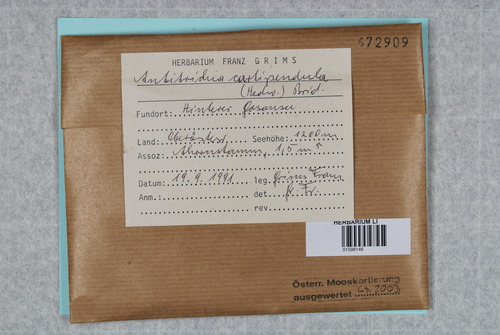 672909
HERBARIUM FRANZ GRIMS
Antitrichia curtipendula
(Hedw.) Brid.
Fundort: Hinterer Gosausee
Land: Oberösterr. Seehöhe: 1200m
Assoz: Ahornstamm, 1,5 m
Datum: 19.9.1991 leg. Grims Franz
Anm.: det. G. Fr.
rev.
HERBARIUM LI
Österr. Mooskartierung
ausgewertet 2003